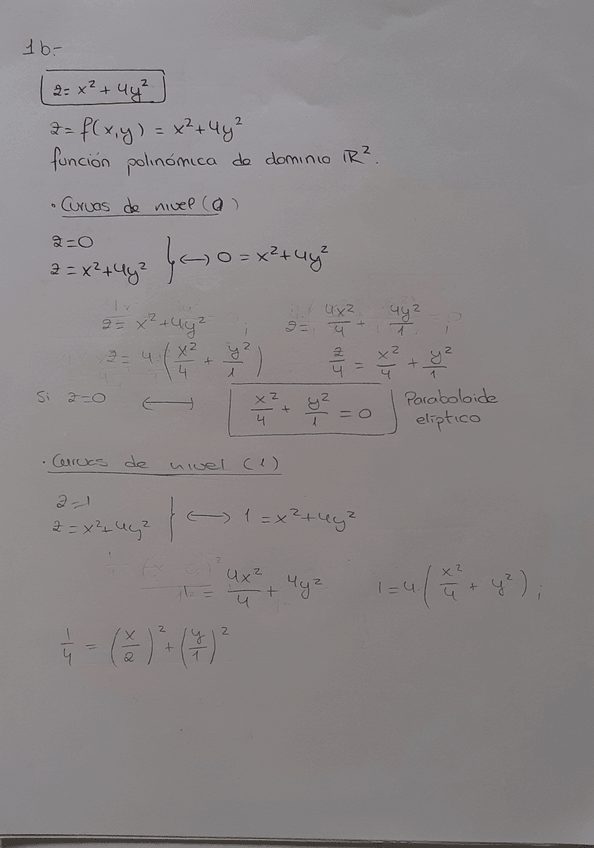 1b.-
z = x² + 4y²
z = f(x,y) = x² + 4y²
función polinómica de dominio ℝ².
· Curvas de nivel (0)
z = 0
z = x² + 4y² } ⟷ 0 = x² + 4y²
z = x² + 4y² ; z = 4x²/4 + 4y²/1 ;
z = 4 (x²/4 + y²/1) z/4 = x²/4 + y²/1
Si z = 0 ⟷ x²/4 + y²/1 = 0 Paraboloide elíptico
· Curvas de nivel (1)
z = 1
z = x² + 4y² } ⟷ 1 = x² + 4y²
1 = 4x²/4 + 4y² 1 = 4 (x²/4 + y²) ;
1/4 = (x/2)² + (y/1)²